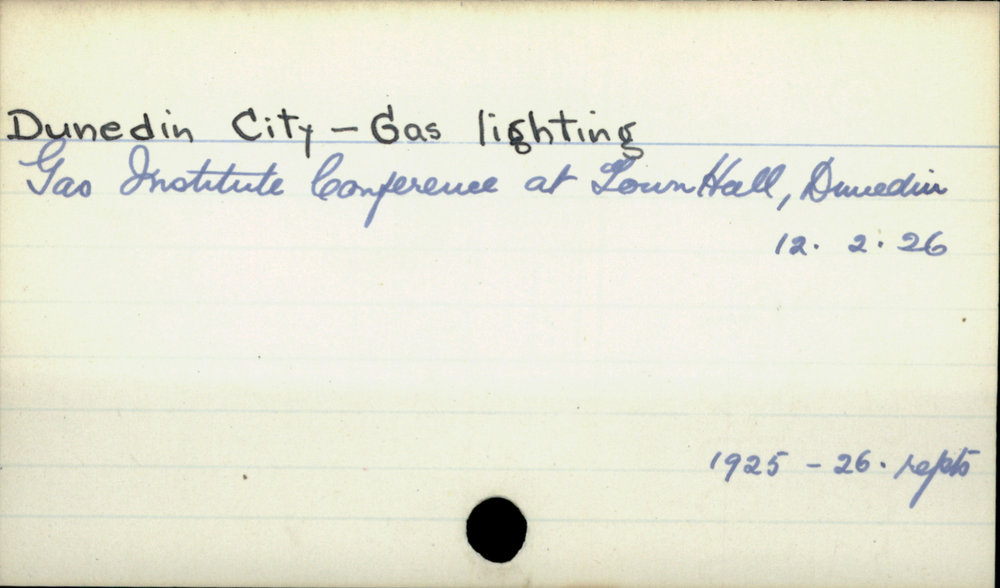 Dunedin City - Gas lighting
Gas Institute Conference at Town Hall, Dunedin
12. 2. 26
1925 - 26. repts